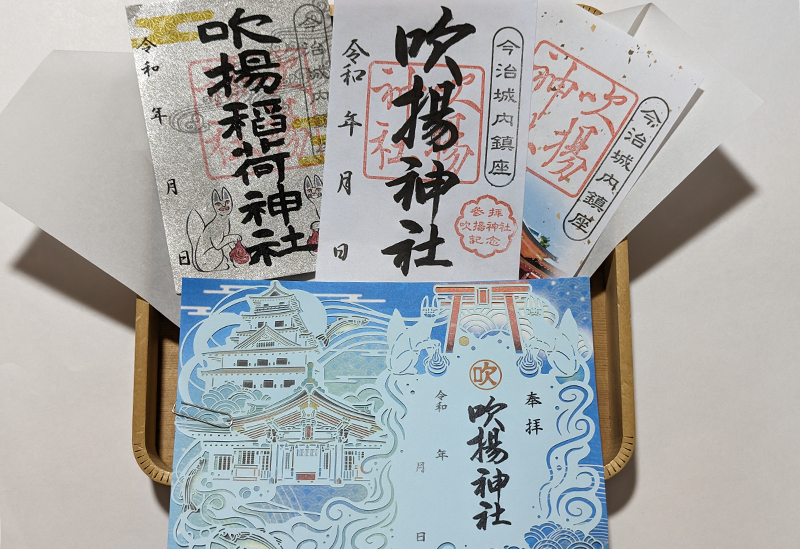 吹揚稲荷神社
令和 年
月
日
今治城内鎮座
今治城内鎮座
吹揚神社
吹揚
神社
令和 年
月
日
参拝
吹揚神社
記念
今治城内鎮座
吹揚
神社
奉拝
吹
吹揚神社
令和
年
月
日